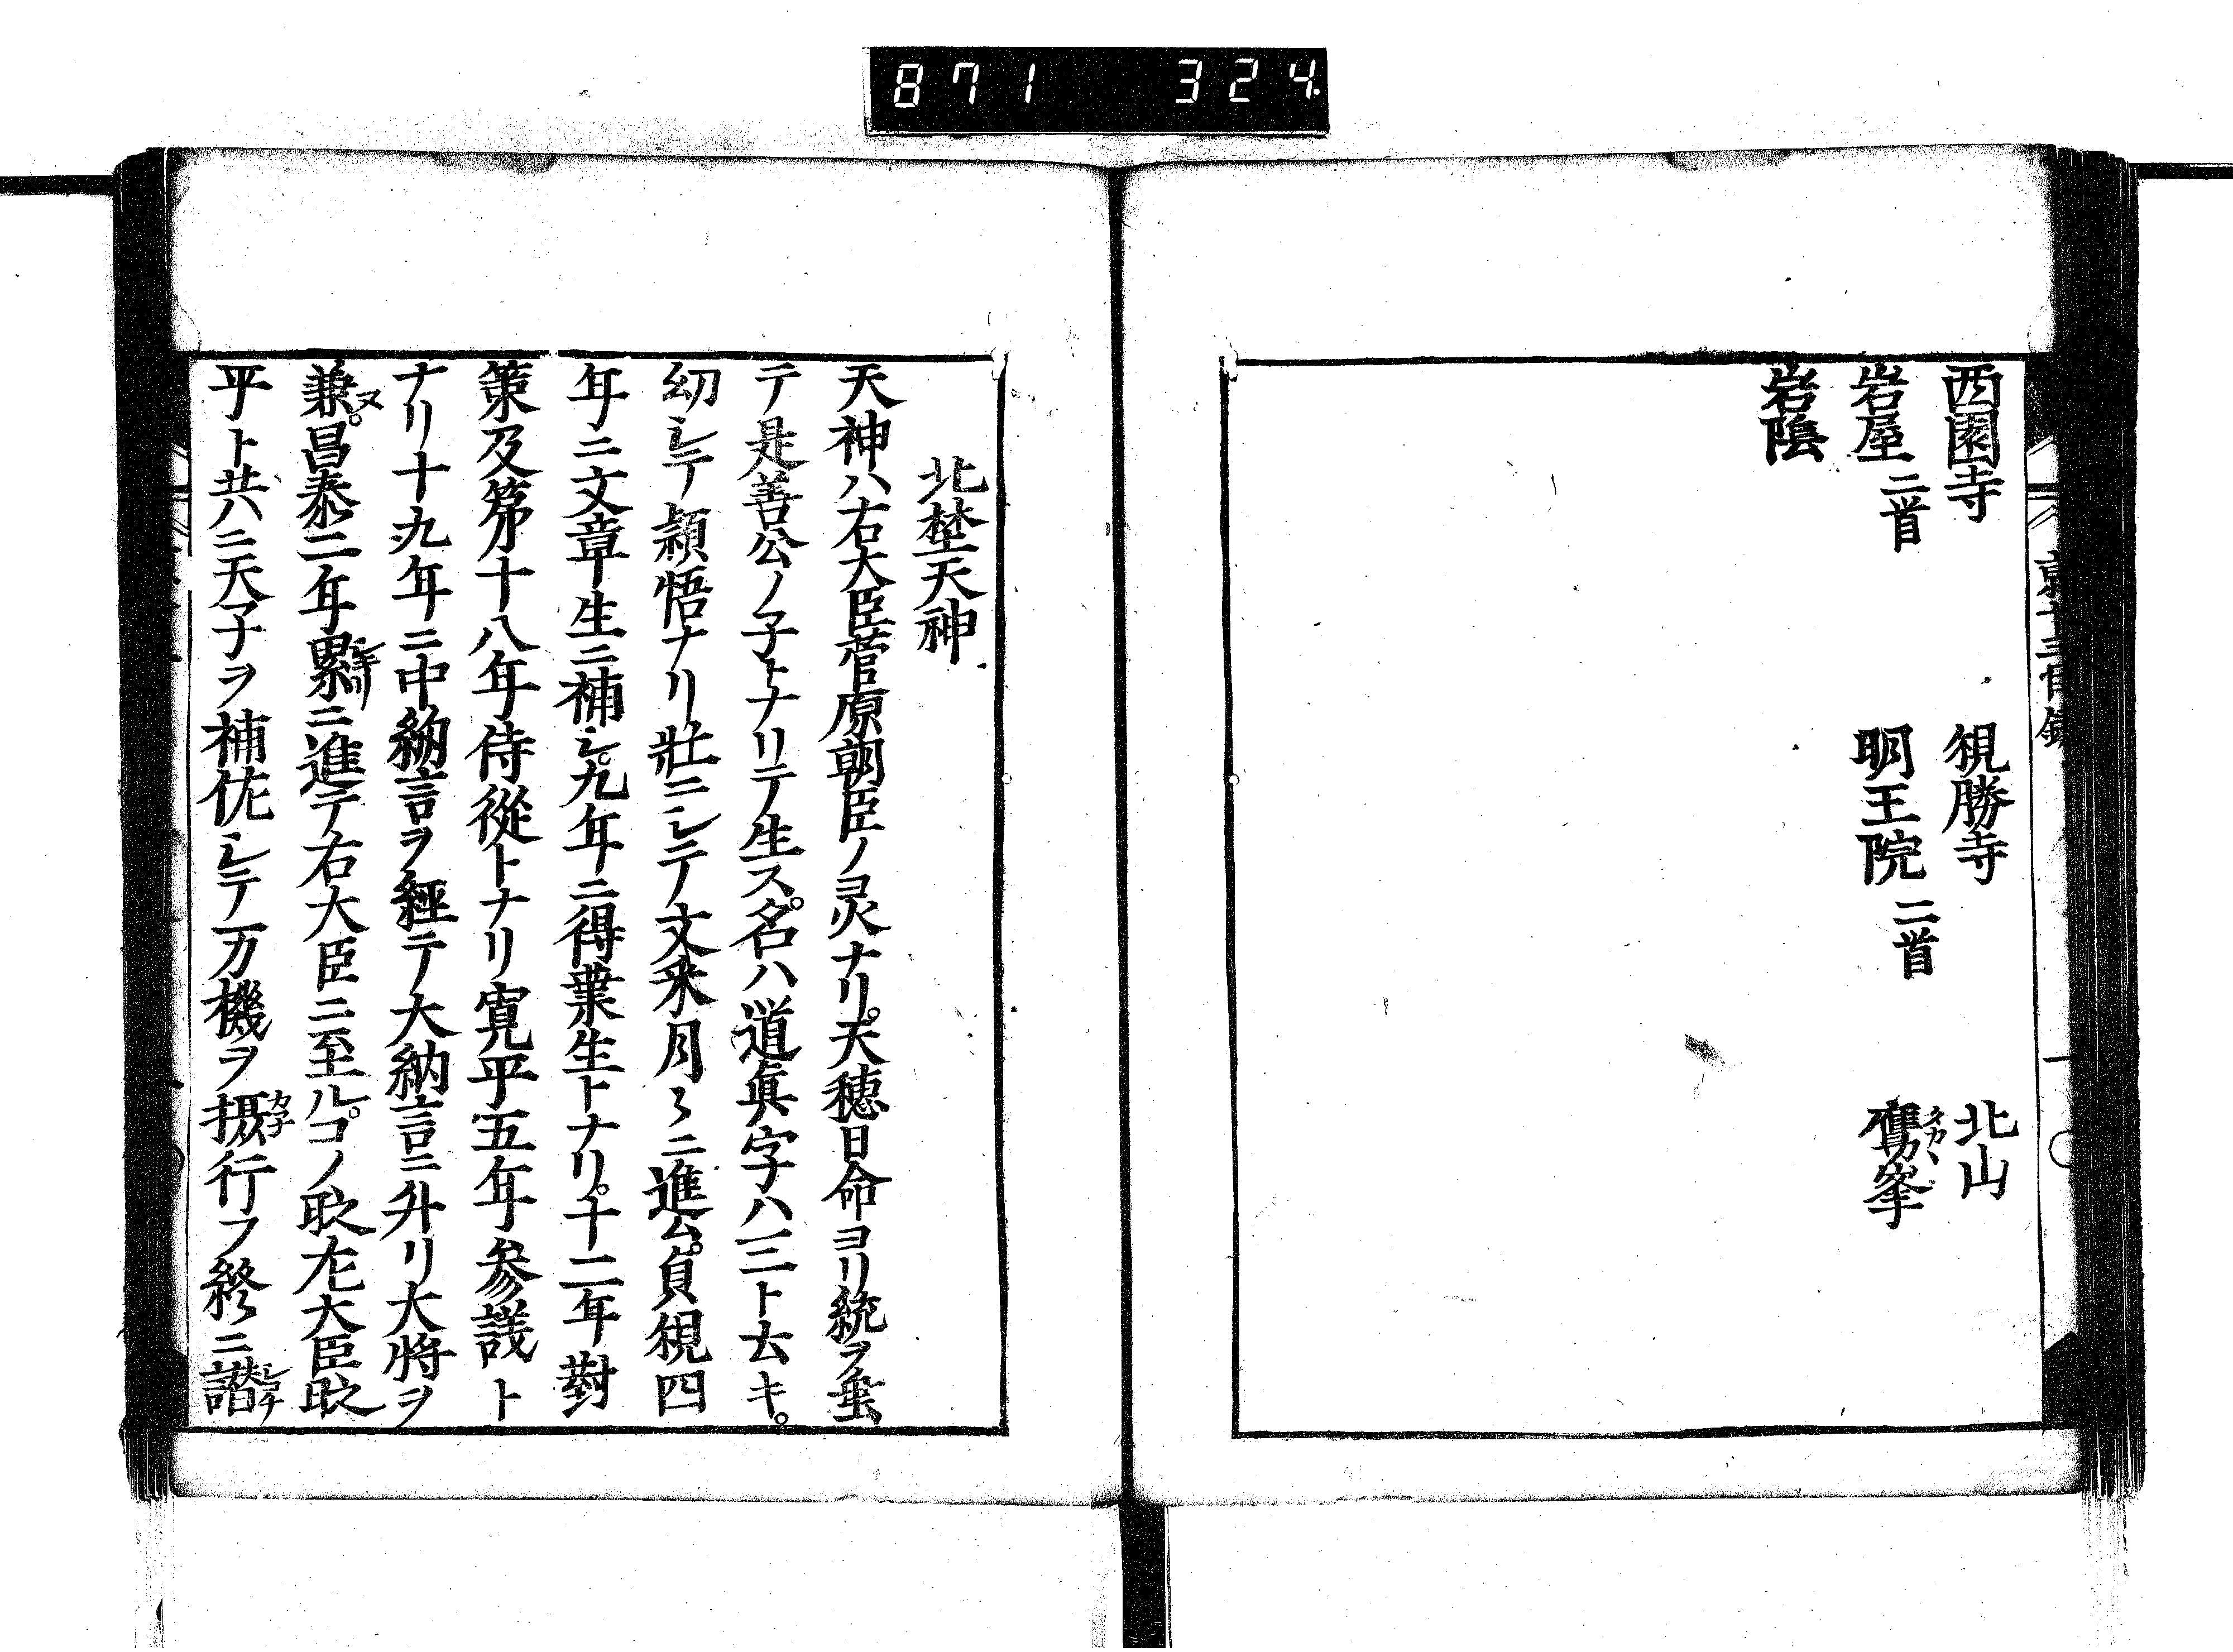 871 324
西園寺 視勝寺 北山
岩屋二首 明王院二首 鷹峯
岩蔭
北埜天神
天神ハ右大臣菅原朝臣ノ灵ナリ。天穂日命ヨリ統ヲ垂
テ是善公ノ子トナリテ生ス。名ハ道眞字ハ三ト云キ。
幼シテ穎悟ナリ壯ニシテ文釆月々ニ進ム。貞観四
年ニ文章生ニ補シ。九年ニ得業生トナリ。十二年對
策及第十八年侍從トナリ寛平五年参議ト
ナリ十九年ニ中納言ヲ經テ大納言ニ升リ大将ヲ
兼ヌ。昌泰二年累ニ進テ右大臣ニ至ル。コノ時左大臣時
平ト共ニ天子ヲ補佐シテ万機ヲ摂行フ終ニ譖